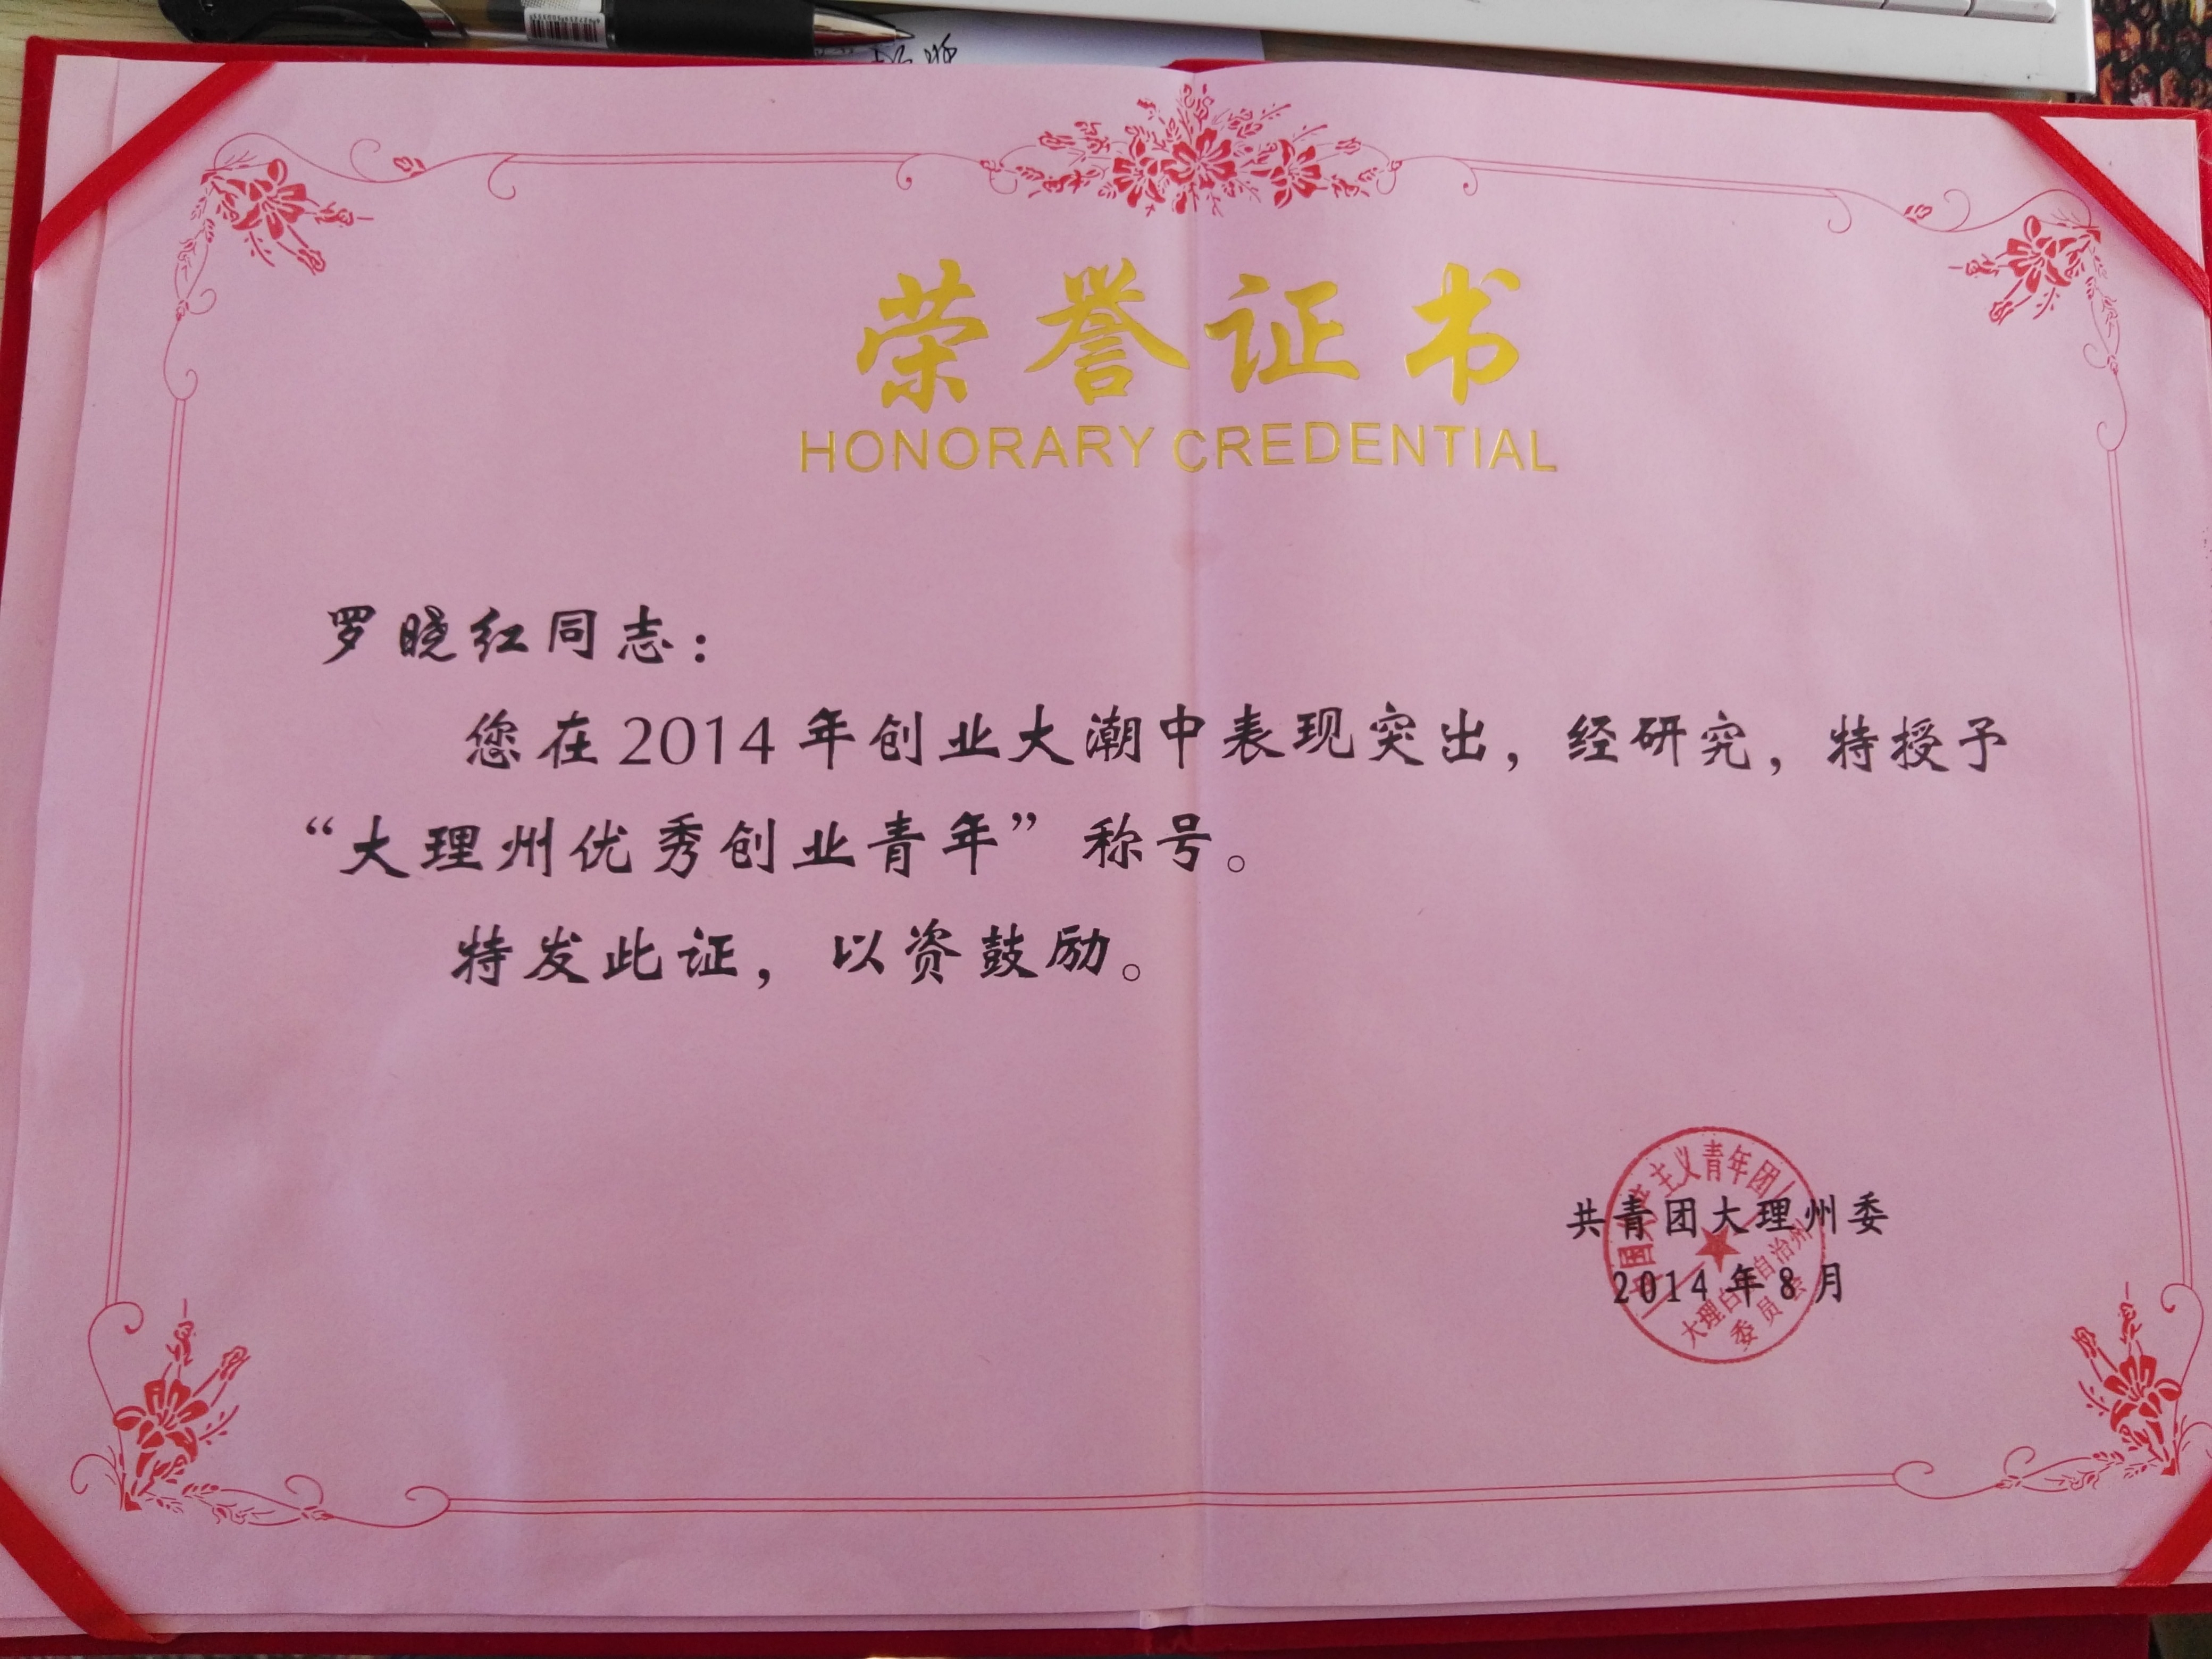 荣誉证书
HONORARY CREDENTIAL
罗晓红同志：
您在2014年创业大潮中表现突出，经研究，特授予
“大理州优秀创业青年”称号。
特发此证，以资鼓励。
共青团大理州委
2014年8月
主义青年团
大理白 自治州
委员会